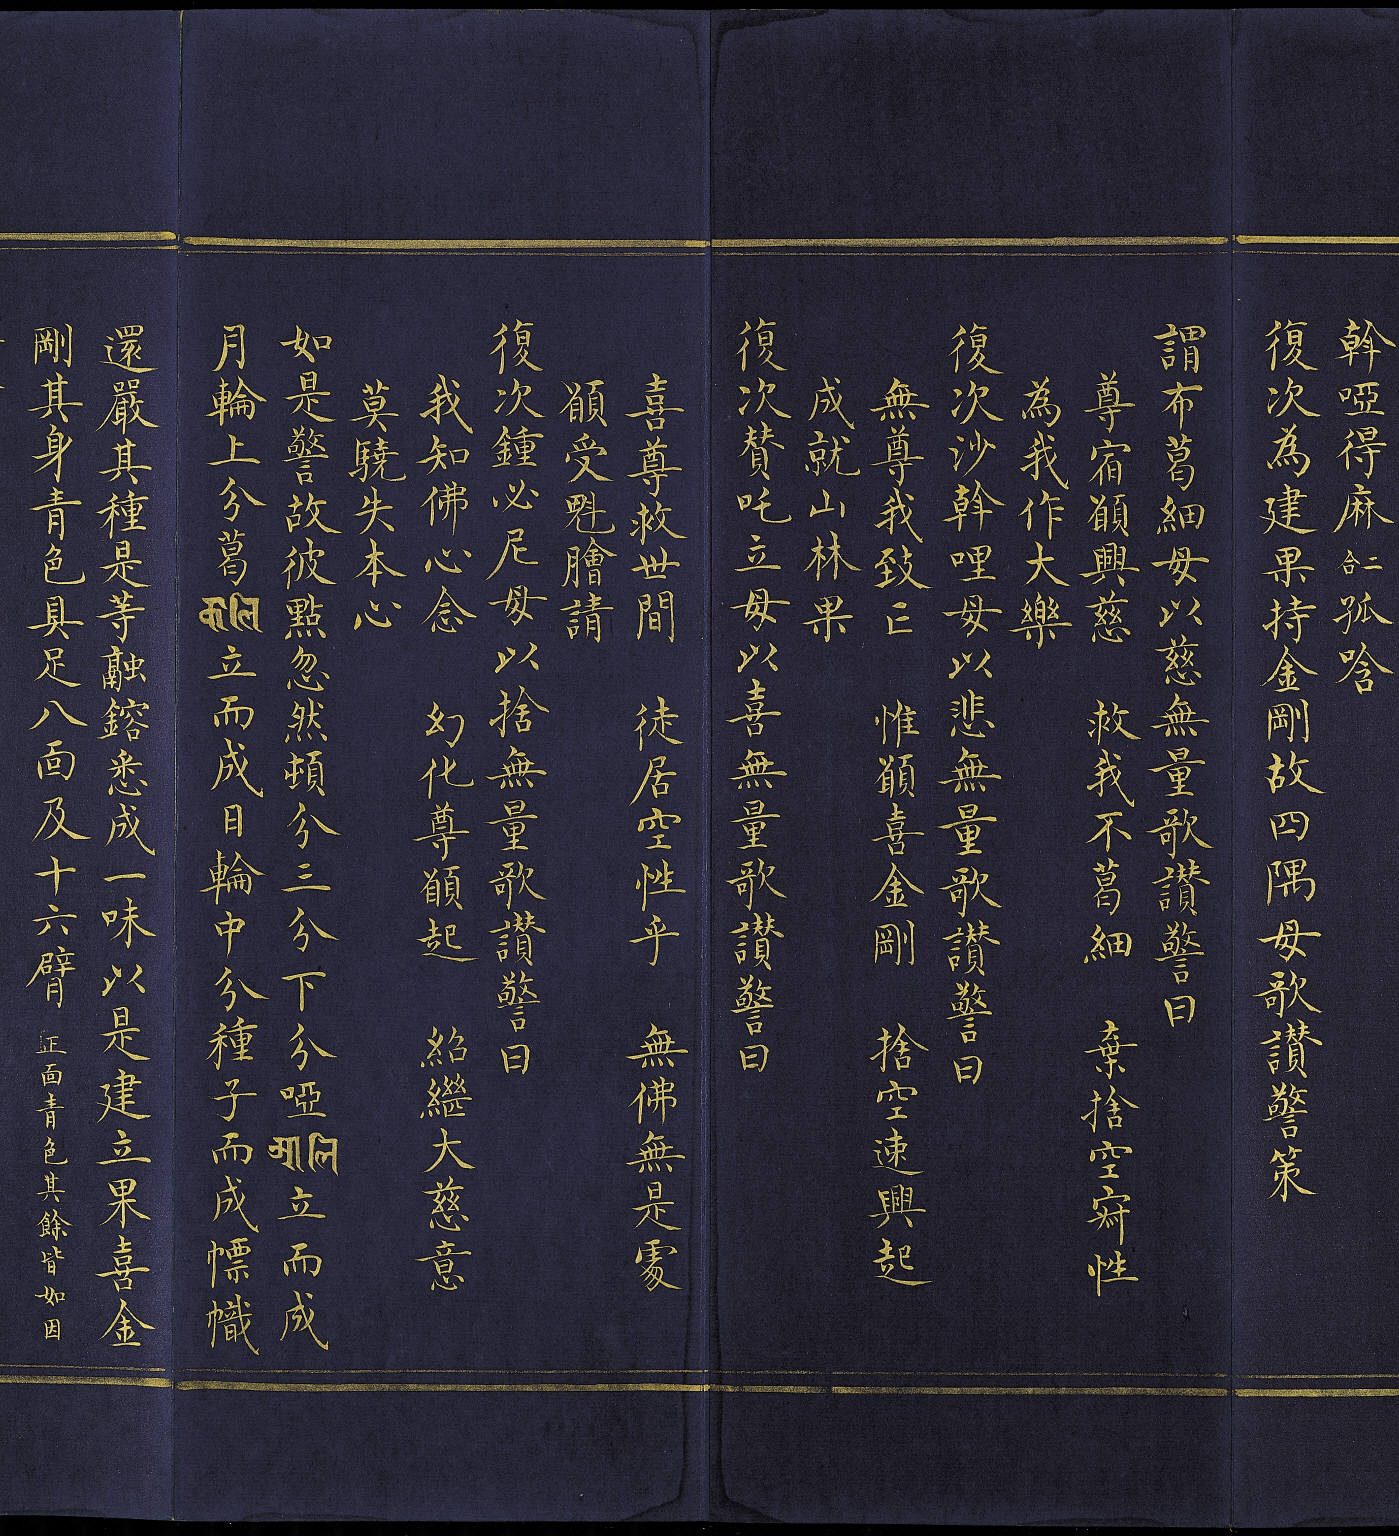 斡啞得麻二合孤唅
復次為建果持金剛故四隅母歌讃警策
謂布葛細母以慈無量歌讃警曰
尊宿願興慈　救我不葛細　棄捨空寂性
為我作大樂
復次沙斡哩母以悲無量歌讃警曰
無尊我致亡　惟願喜金剛　捨空速興起
成就山林果
復次贊吒立母以喜無量歌讃警曰
喜尊救世間　徒居空性乎　無佛無是處
願受魁膾請
復次鍾必尼母以捨無量歌讃警曰
我知佛心念　幻化尊願起　紹繼大慈意
莫驍失本心
如是警故彼點忽然頓分三分下分啞आलि立而成
月輪上分葛कालि立而成日輪中分種子而成幖幟
還嚴其種是等融鎔悉成一味以是建立果喜金
剛其身青色具足八面及十六臂正面青色其餘皆如因